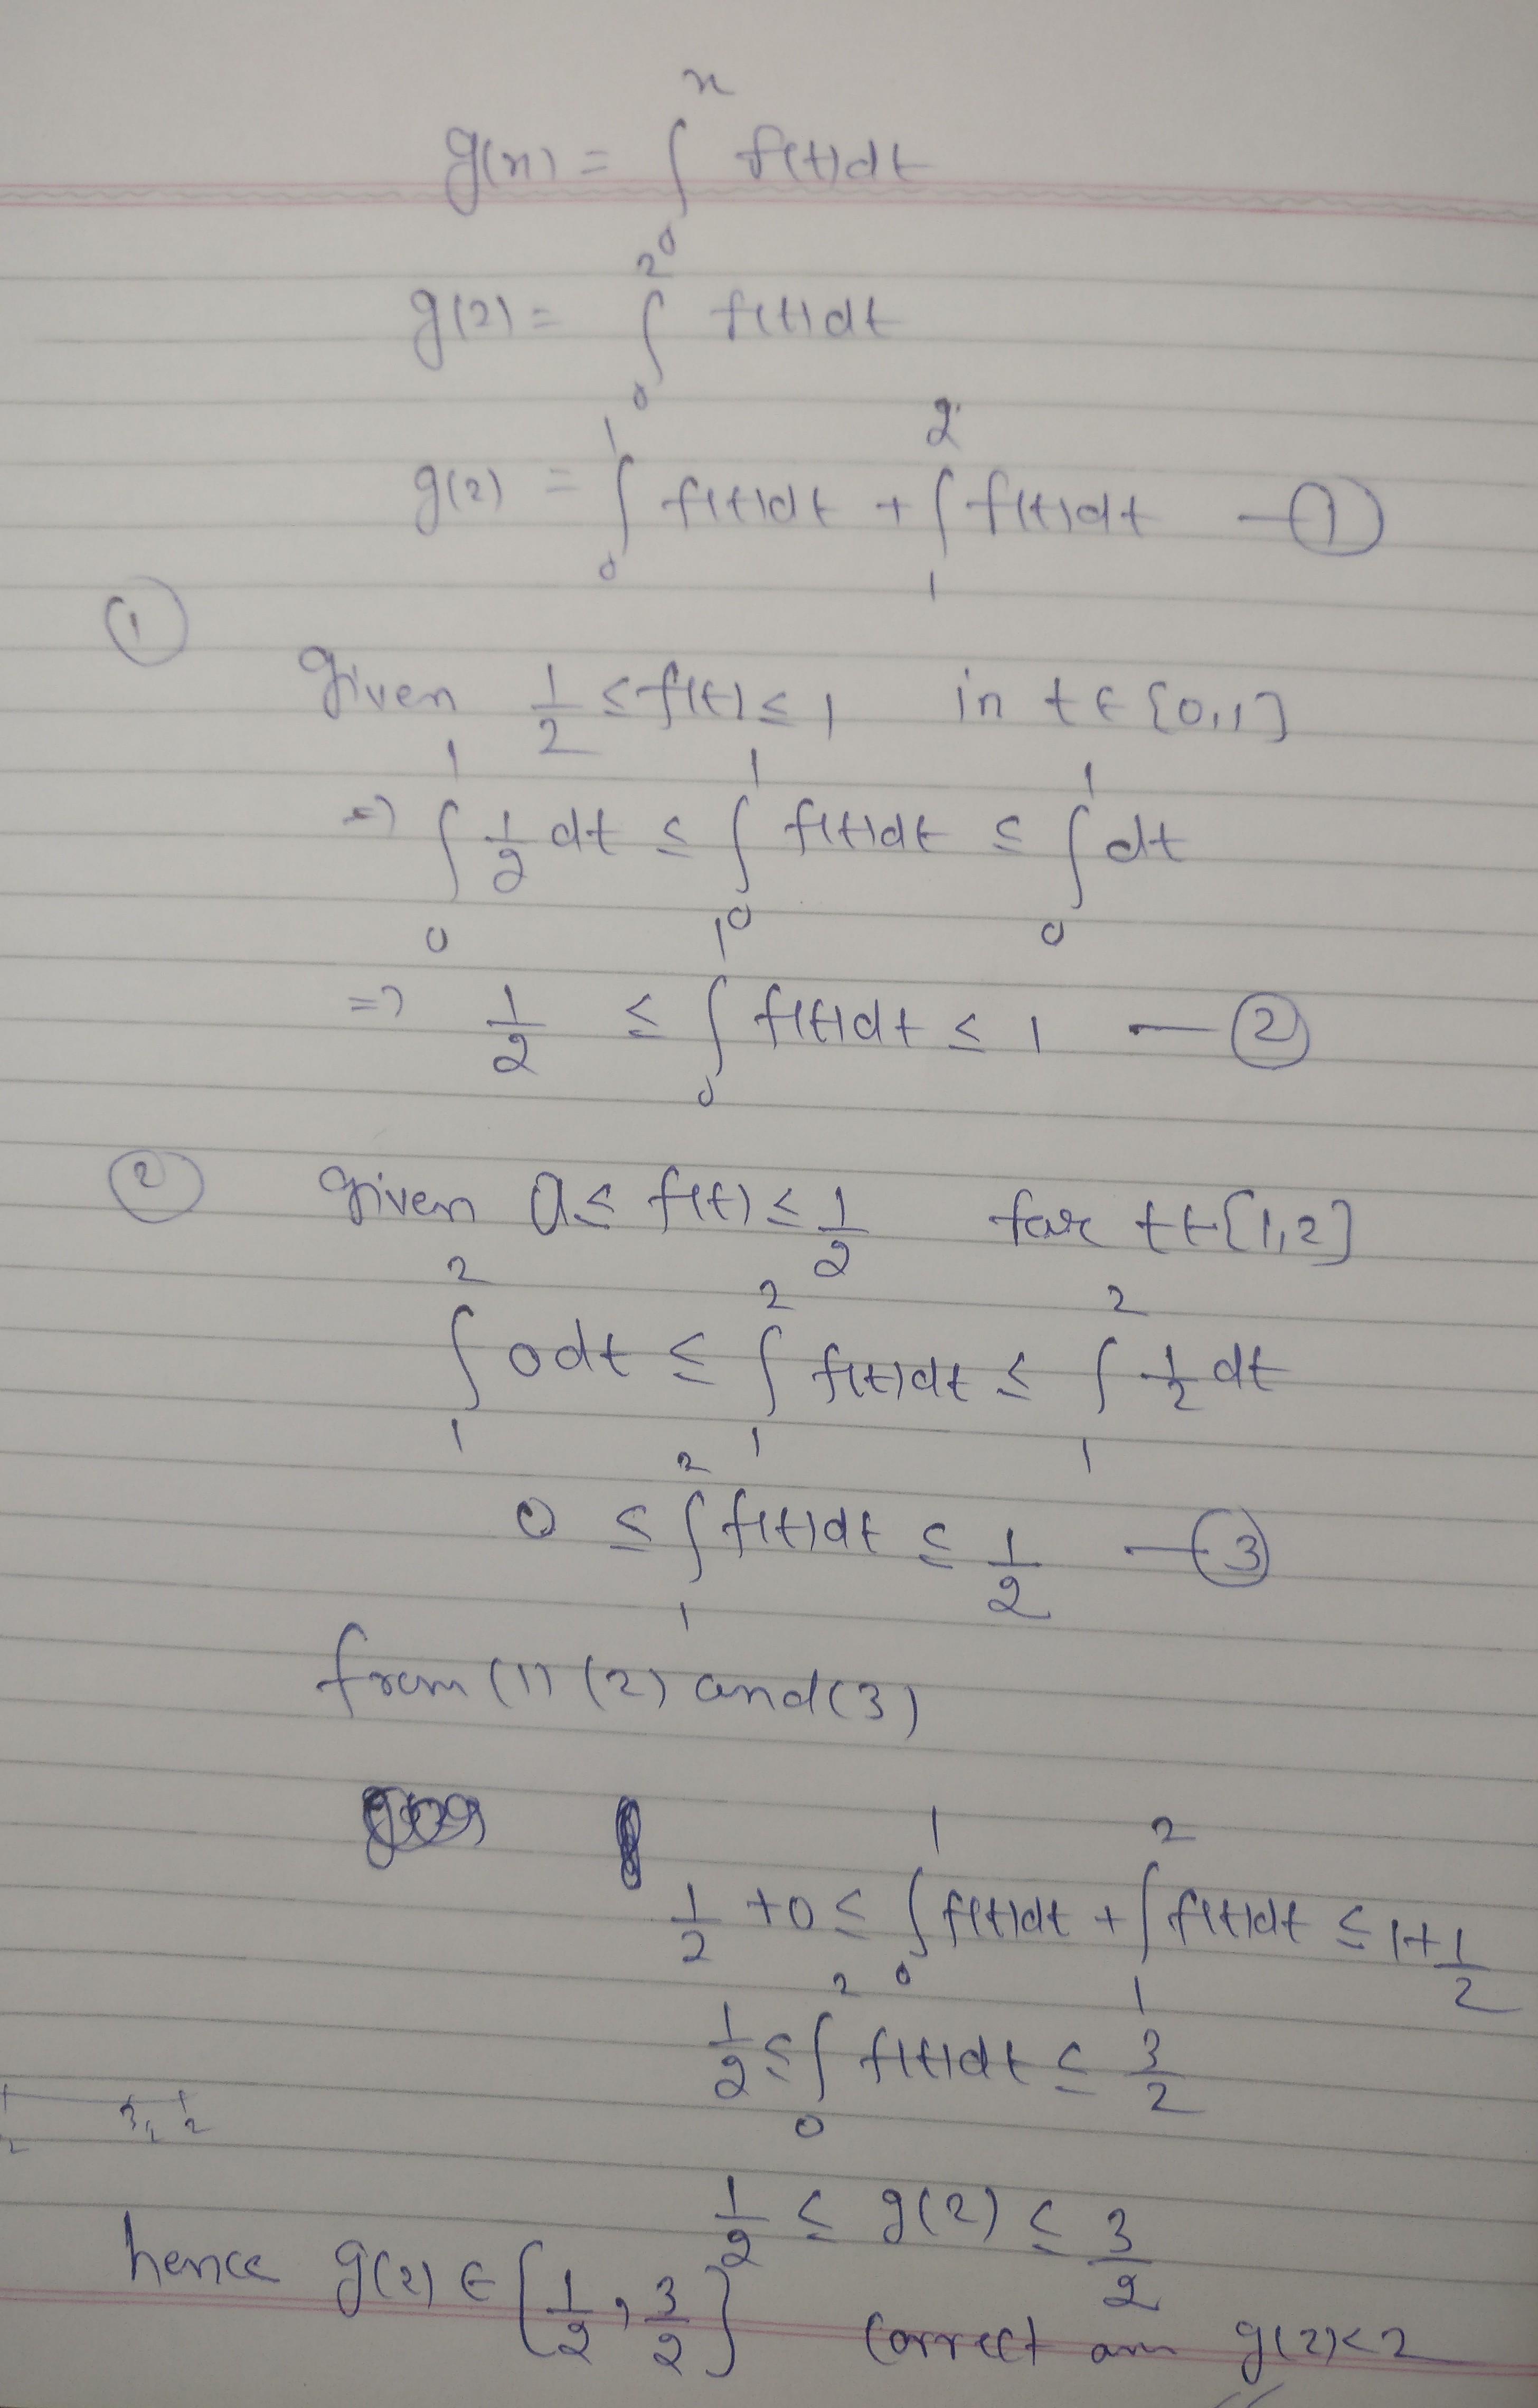 g(x) = ∫₀ˣ f(t)dt
g(2) = ∫₀² f(t)dt
g(2) = ∫₀¹ f(t)dt + ∫₁² f(t)dt — ①
① Given 1/2 ≤ f(t) ≤ 1 in t ∈ [0,1]
⇒ ∫₀¹ 1/2 dt ≤ ∫₀¹ f(t)dt ≤ ∫₀¹ dt
⇒ 1/2 ≤ ∫₀¹ f(t)dt ≤ 1 — ②
② Given 0 ≤ f(t) ≤ 1/2 for t ∈ [1,2]
∫₁² 0 dt ≤ ∫₁² f(t)dt ≤ ∫₁² 1/2 dt
0 ≤ ∫₁² f(t)dt ≤ 1/2 — ③
from (1) (2) and (3)
1/2 + 0 ≤ ∫₀¹ f(t)dt + ∫₁² f(t)dt ≤ 1 + 1/2
1/2 ≤ ∫₀² f(t)dt ≤ 3/2
1/2 ≤ g(2) ≤ 3/2
hence g(2) ∈ [1/2, 3/2] correct g(2) < 2